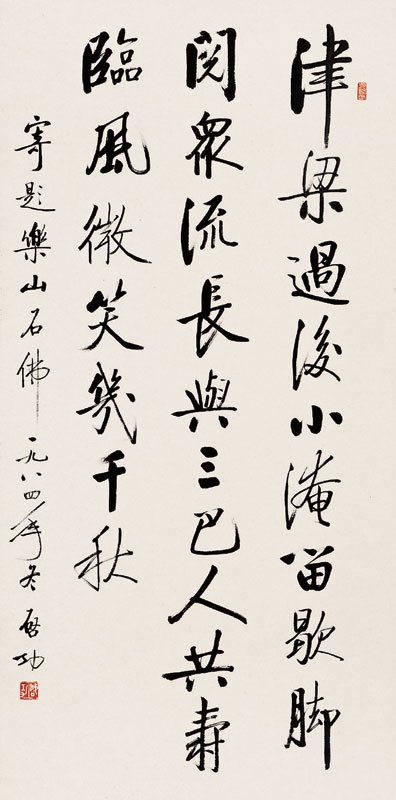 津梁過後小淹留歇脚
閱眾流長與三巴人共壽
臨風微笑幾千秋
寄題樂山石佛 一九八四年冬 啟功